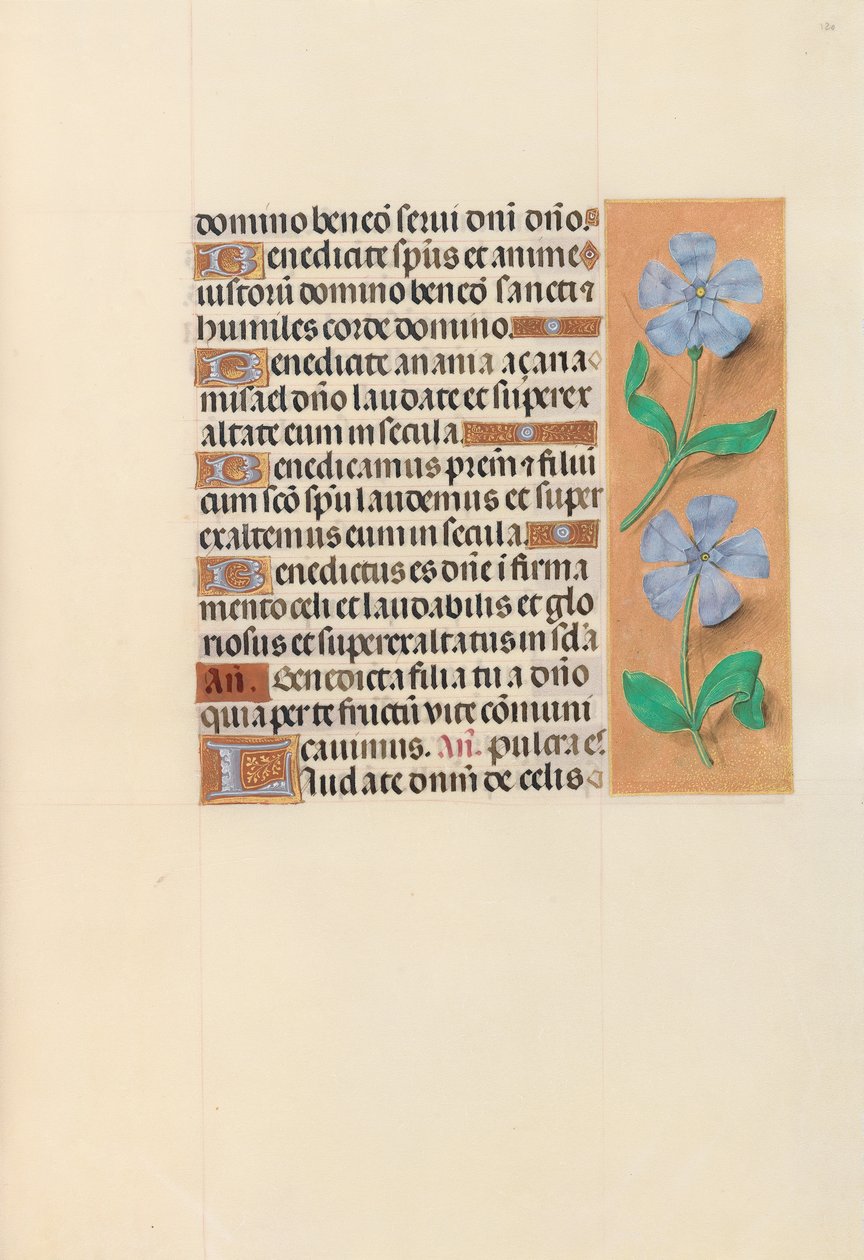 120
domino benedō serui dnī dño.
Benedicite spūs et anime
iustorū domino benedō sancti ⁊
humiles corde domino.
Benedicite anania açaria
misael dño laudate et superex
altate eum in secula.
Benedicamus prēm ⁊ filiū
cum scō spū laudemus et super
exaltemus eum in secula.
Benedictus es dñe ī firma
mento celi et laudabilis et glo
riosus et superexaltatus in scl'a
Añ. Benedicta filia tu a dño
quia per te fructū vite cōmuni
cauimus. Añ. Pulcra es.
Laudate dnm̄ de celis